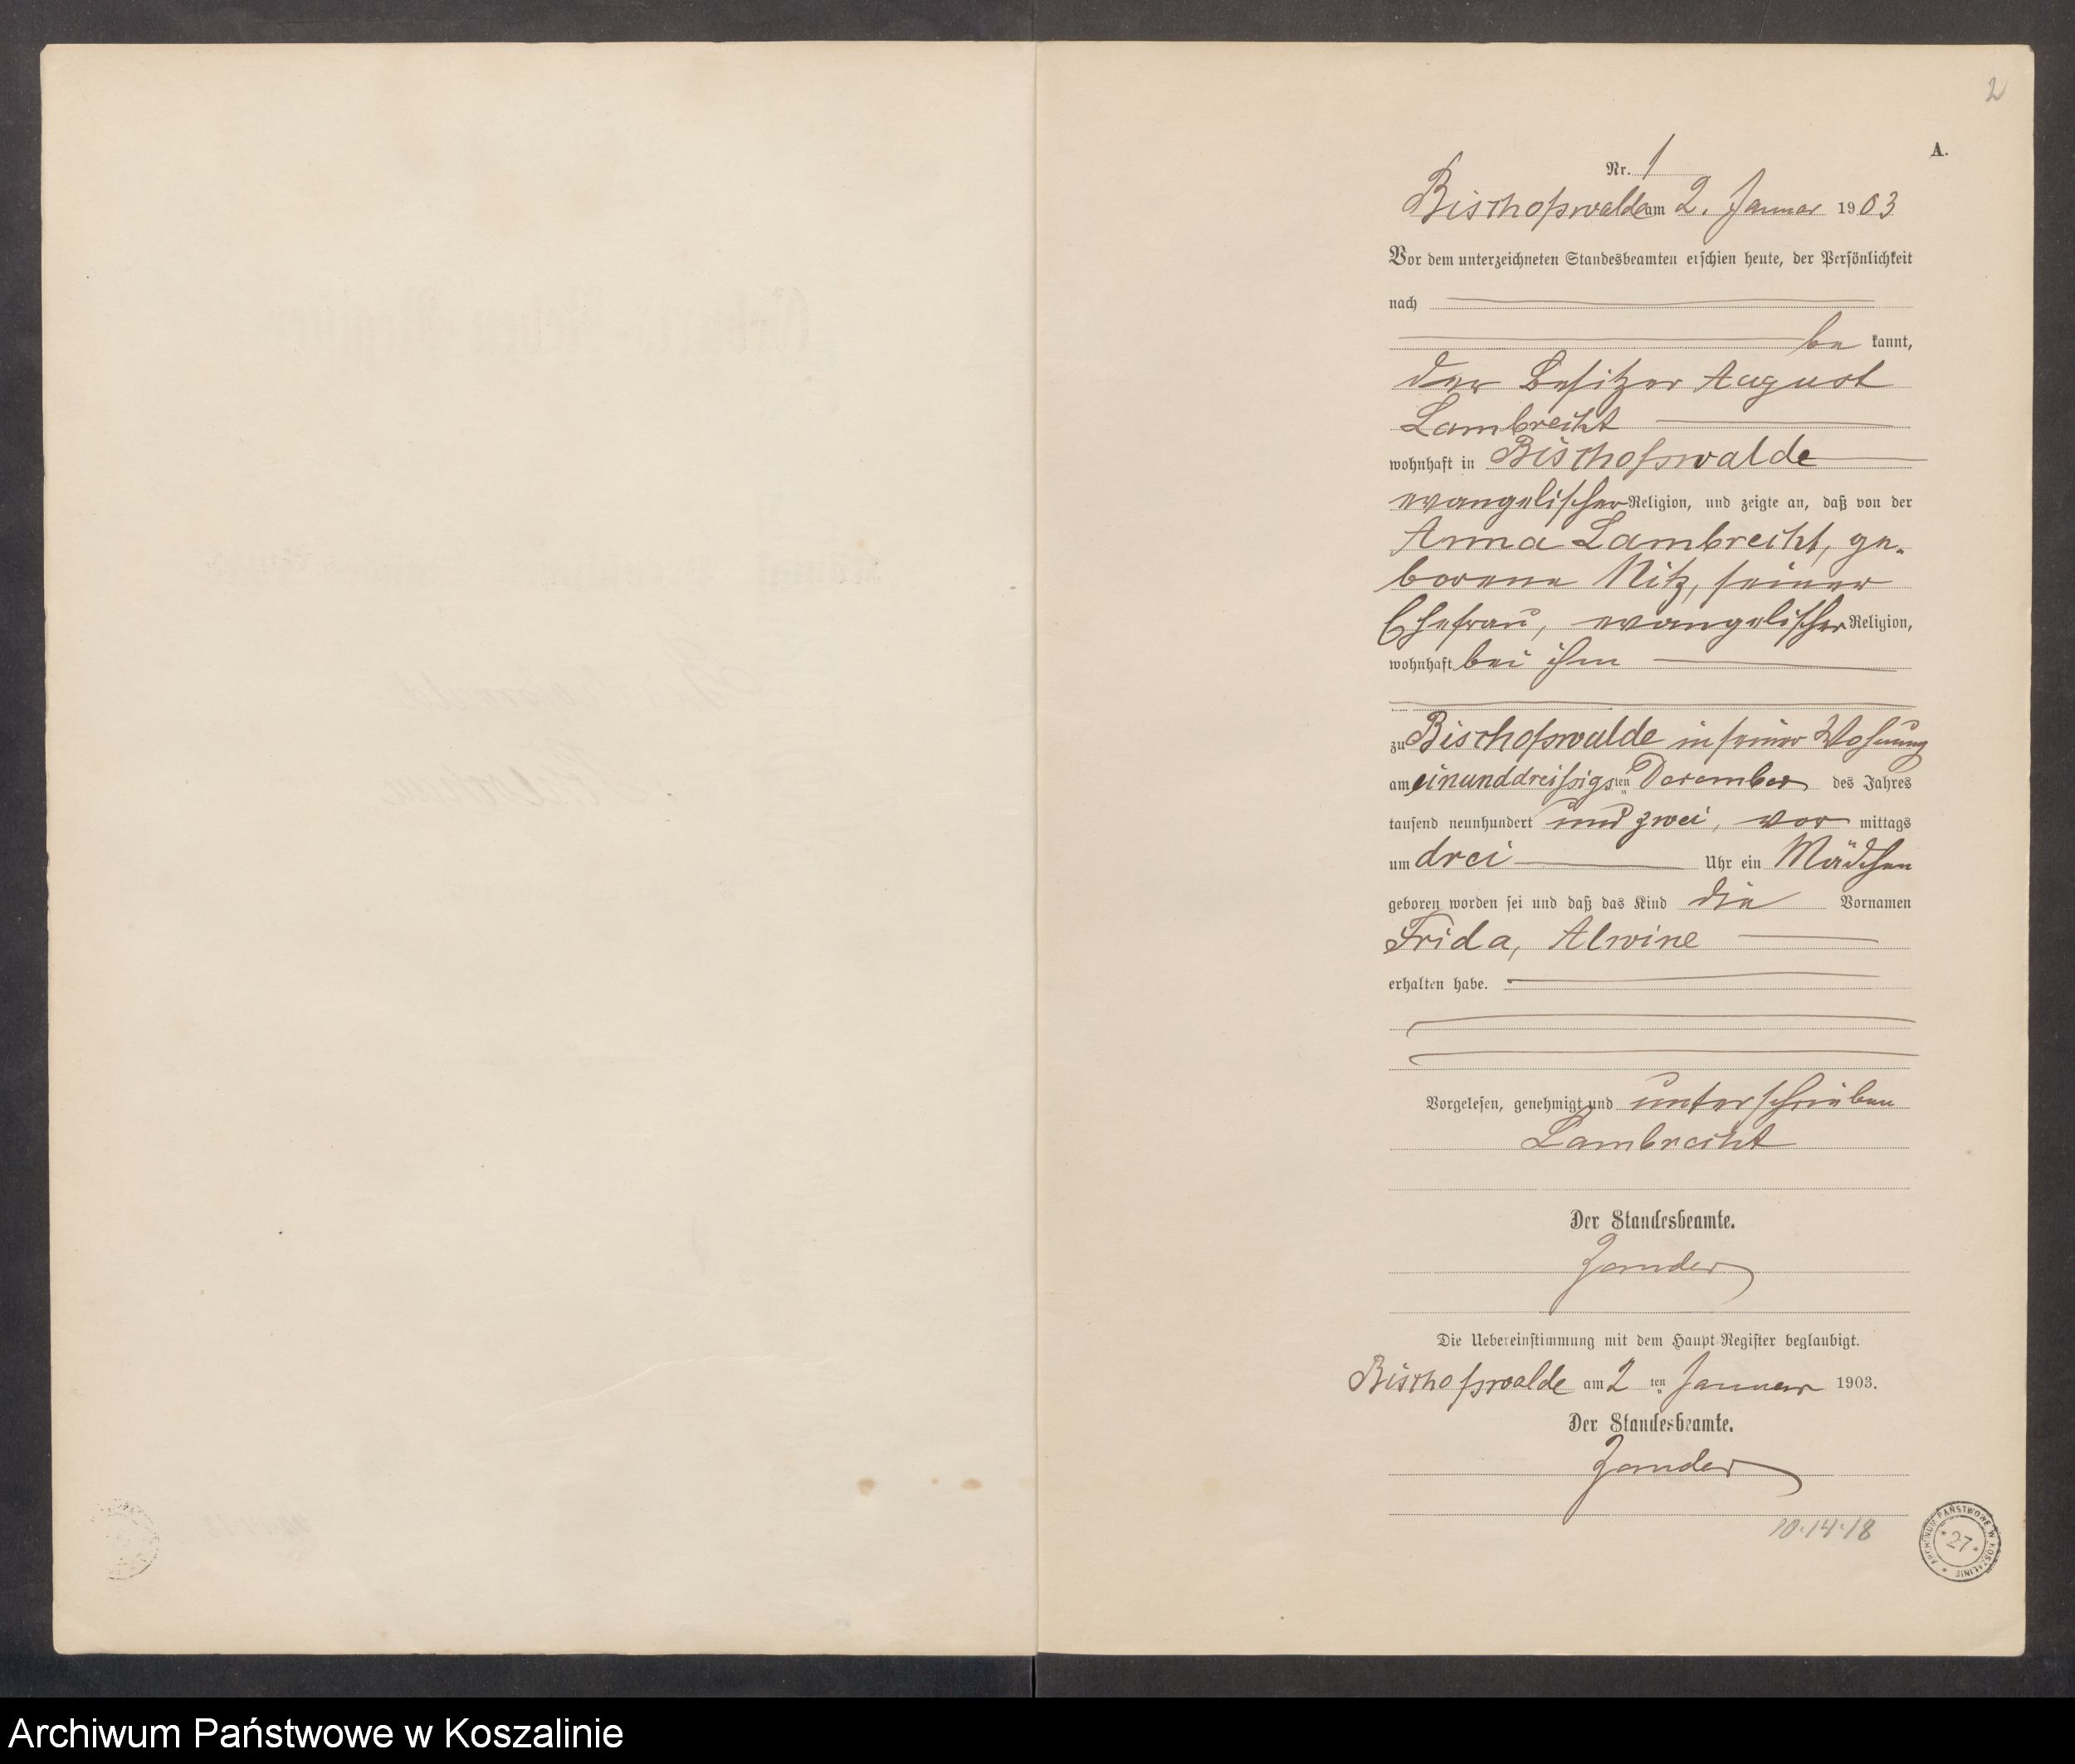 2
A.
Nr. 1
Bischofswalde am 2. Januar 1903
Vor dem unterzeichneten Standesbeamten erschien heute, der Persönlichkeit
nach
be kannt,
der Besitzer August
Lambrecht
wohnhaft in Bischofswalde
evangelischer Religion, und zeigte an, daß von der
Anna Lambrecht, ge-
borene Nitz, seiner
Ehefrau, evangelischer Religion,
wohnhaft bei ihm
zu Bischofswalde in seiner Wohnung
am einunddreißigsten Dezember des Jahres
tausend neunhundert und zwei, vor mittags
um drei Uhr ein Mädchen
geboren worden sei und daß das Kind die Vornamen
Frida, Alwine
erhalten habe.
Vorgelesen, genehmigt und unterschrieben
Lambrecht
Der Standesbeamte.
Zander
Die Uebereinstimmung mit dem Haupt-Register beglaubigt.
Bischofswalde am 2 ten Januar 1903.
Der Standesbeamte.
Zander
10.14.18
ARCHIWUM PAŃSTWOWE W KOSZALINIE
* 27 *
Archiwum Państwowe w Koszalinie